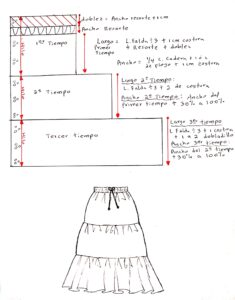 doblez = Ancho resorte + 1cm
Ancho Resorte
1er Tiempo
Largo = L. falda ÷ 3 + 1cm costura
Primer Tiempo + Resorte + doblez
Ancho = 1/4 C. Cadera +
de pliege + 1cm costura
Largo 2º Tiempo:
L. falda ÷ 3 + 2 de costura
Ancho 2º Tiempo: Ancho del
Primer tiempo + 30% a 100%
2º Tiempo
Largo 3er tiempo
L falda ÷ 3 + 1 costura
+ 1 a 2 dobladillo
Ancho 3er Tiempo:
Ancho del 2º tiempo
+ 30% a 100%
Tercer tiempo